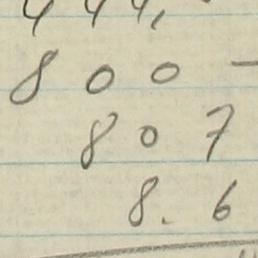 800 -
807
8.6